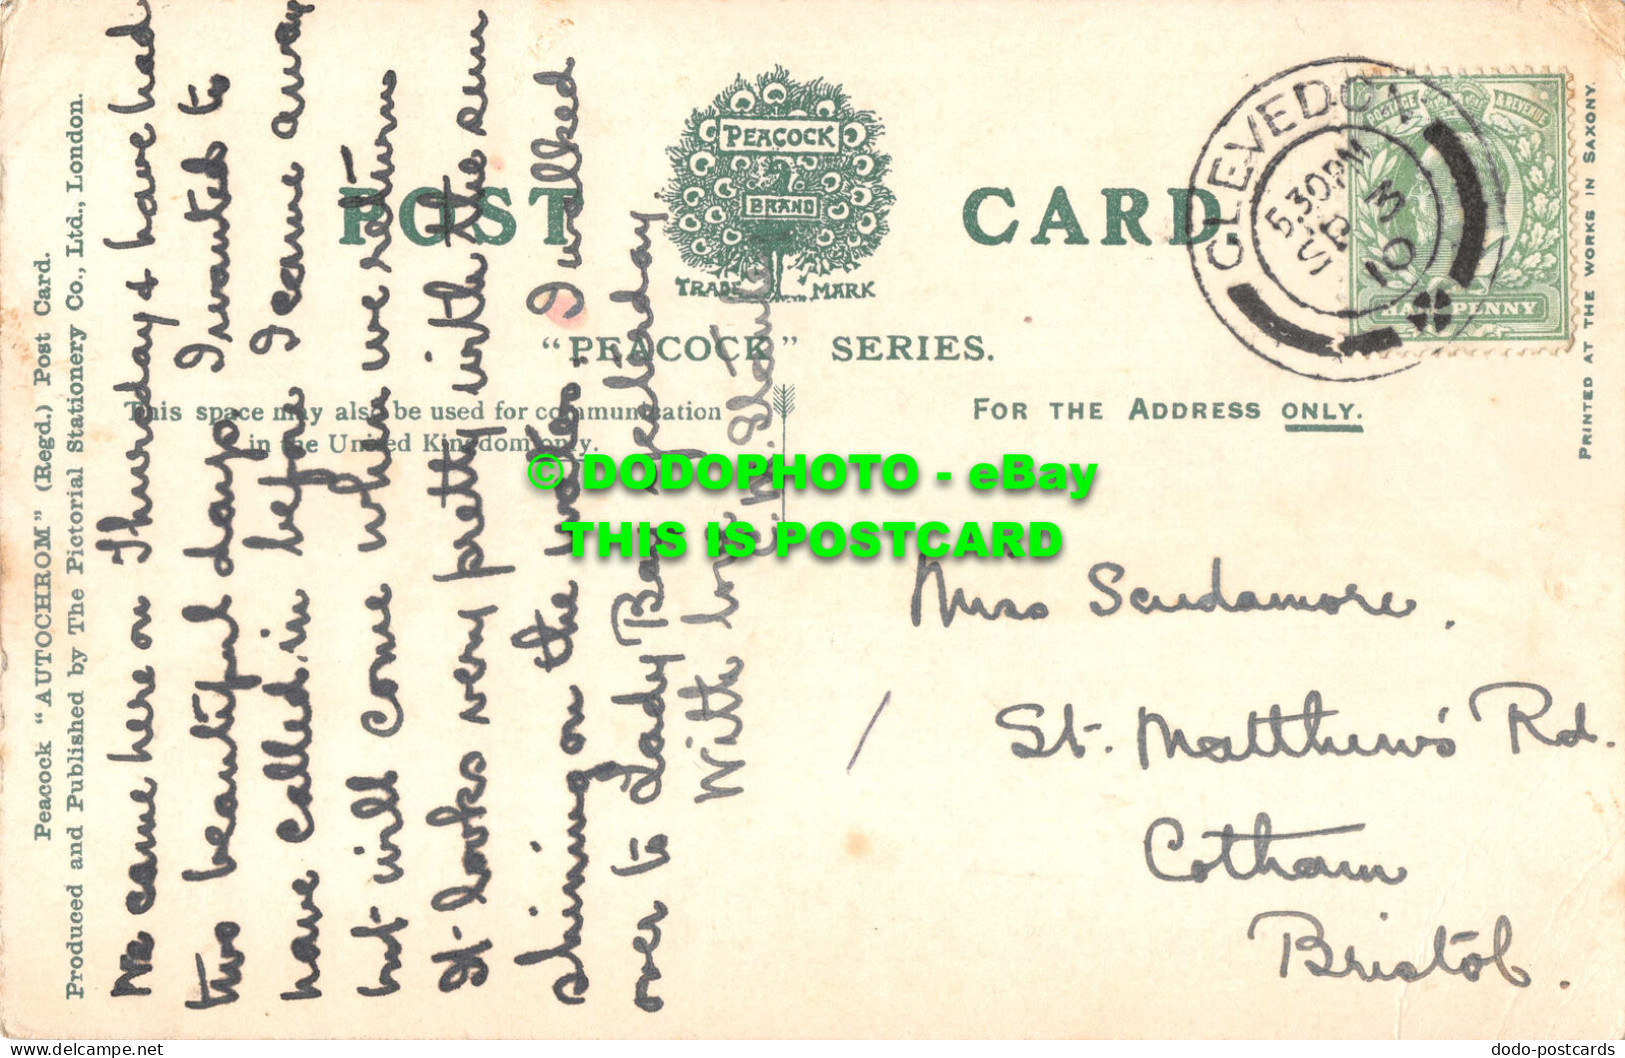 Peacock "AUTOCHROM" (Regd.) Post Card.
Produced and Published by The Pictorial Stationery Co., Ltd., London.
We came here on Thursday & have had
two beautiful days. I wanted to
have called in before I came away
but will come when we return
It looks very pretty with the sun
shining on the water. I walked
over to Lady Bay yesterday
With love
POST CARD
PEACOCK
BRAND
TRADE MARK
"PEACOCK" SERIES.
This space may also be used for communication
in the United Kingdom only.
FOR THE ADDRESS ONLY.
CLEVEDON
5.30PM
SP 3
10
POSTAGE & REVENUE
HALFPENNY
PRINTED AT THE WORKS IN SAXONY.
© DODOPHOTO - eBay
THIS IS POSTCARD
Miss Scudamore.
St. Matthew's Rd.
Cotham
Bristol.
dodo-postcards